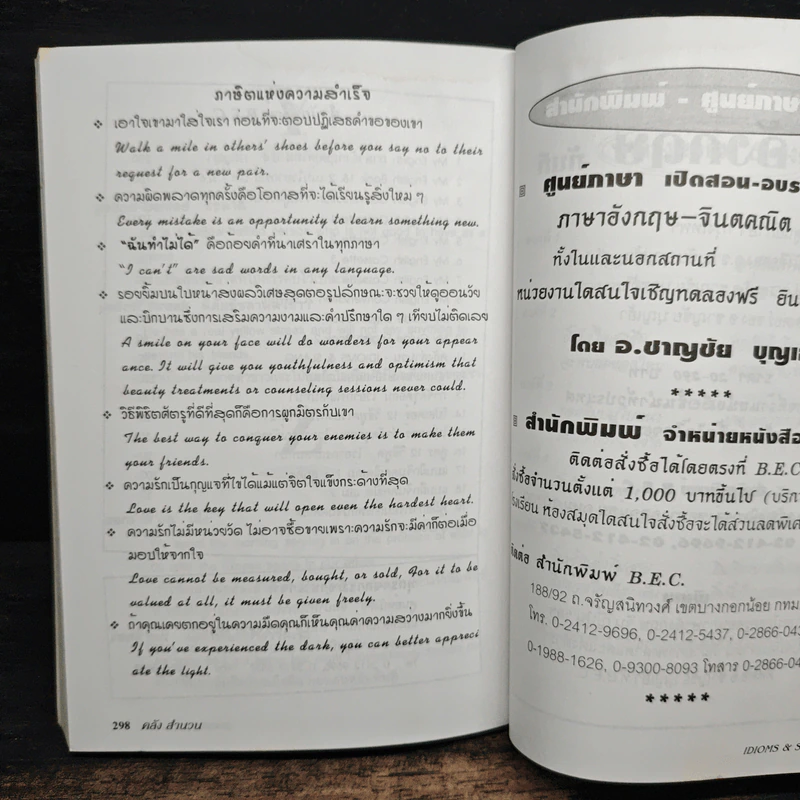 ภาษิตแห่งความสำเร็จ
❖ เอาใจเขามาใส่ใจเรา ก่อนที่จะตอบปฏิเสธคำขอของเขา
Walk a mile in others' shoes before you say no to their
request for a new pair.
❖ ความผิดพลาดทุกครั้งคือโอกาสที่จะได้เรียนรู้สิ่งใหม่ ๆ
Every mistake is an opportunity to learn something new.
❖ "ฉันทำไม่ได้" คือถ้อยคำที่น่าเศร้าในทุกภาษา
"I can't" are sad words in any language.
❖ รอยยิ้มบนใบหน้าส่งผลวิเศษสุดต่อรูปลักษณะจะช่วยให้ดูอ่อนวัย
และเบิกบานซึ่งการเสริมความงามและคำปรึกษาใด ๆ เทียบไม่ติดเลย
A smile on your face will do wonders for your appear
ance. It will give you youthfulness and optimism that
beauty treatments or counseling sessions never could.
❖ วิธีพิชิตศัตรูที่ดีที่สุดก็คือการผูกมิตรกับเขา
The best way to conquer your enemies is to make them
your friends.
❖ ความรักเป็นกุญแจที่ไขได้แม้แต่จิตใจแข็งกระด้างที่สุด
Love is the key that will open even the hardest heart.
❖ ความรักไม่มีหน่วยวัด ไม่อาจซื้อขายเพราะความรักจะมีค่าก็ต่อเมื่อ
มอบให้จากใจ
Love cannot be measured, bought, or sold, For it to be
valued at all, it must be given freely.
❖ ถ้าคุณเคยตกอยู่ในความมืดคุณก็เห็นคุณค่าความสว่างมากยิ่งขึ้น
If you've experienced the dark, you can better appreci
ate the light.
298 คลัง สำนวน
สำนักพิมพ์ - ศูนย์ภาษ
ศูนย์ภาษา เปิดสอน-อบร
ภาษาอังกฤษ-จินตคณิต
ทั้งในและนอกสถานที่
หน่วยงานใดสนใจเชิญทดลองฟรี อิน
โดย อ.ชาญชัย บุญเ
*****
สำนักพิมพ์ จำหน่ายหนังสือ
ติดต่อสั่งซื้อได้โดยตรงที่ B.E.C
สั่งซื้อจำนวนตั้งแต่ 1,000 บาทขึ้นไป (บริก
โรงเรียน ห้องสมุดใดสนใจสั่งซื้อจะได้ส่วนลดพิเศ
ติดต่อ สำนักพิมพ์ B.E.C.
188/92 ถ.จรัญสนิทวงศ์ เขตบางกอกน้อย กทม
โทร. 0-2412-9696, 0-2412-5437, 0-2866-043
0-1988-1626, 0-9300-8093 โทสาร 0-2866-04
*****
IDIOMS & S